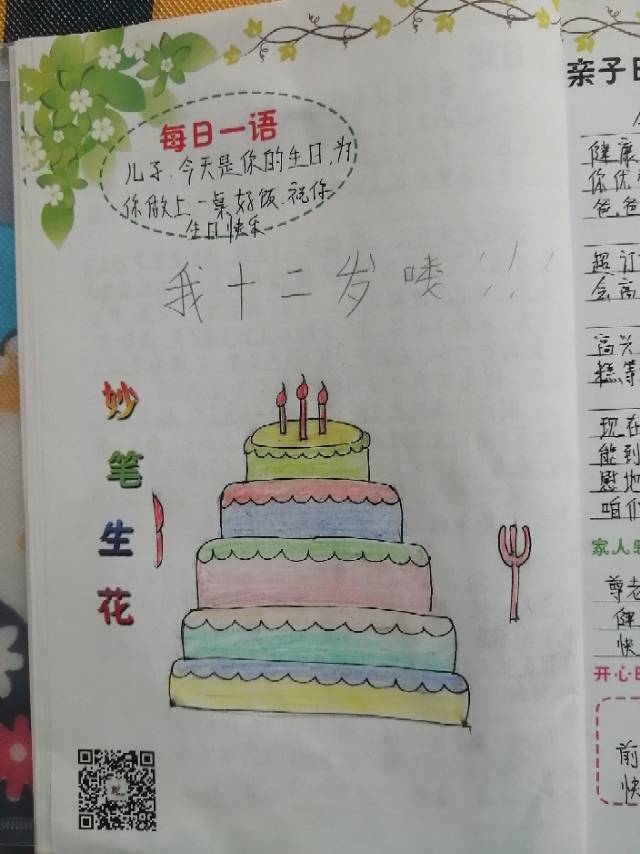 每日一语
儿子.今天是你的生日,为
你做上一桌好饭.祝你
生日快乐
我十二岁喽!!!
妙
笔
生
花
亲子日
健康
你优
爸爸
超订
会高
高兴
糕等
现在
能到
慰地
咱们
家人
尊老
健
快
开心日
前
快